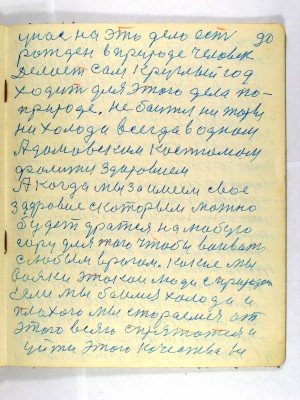 у нас на это дело есть 90
рожден в природе человек
делает сам круглый год
ходит для этого дела по-
природе. не боится ни жары
ни холода всегда в одном
Адамовским костюмом
здоровием
А когда мы заимеем свое
здоровие с которым можно
будет дратся на любую
для того чтобы воиват
с любым врагом. какие мы
вояки этакои люди с природою
если мы боимся холода и
плохого мы стараемся от
этого всего спрятатся и
уйти этого качества ни